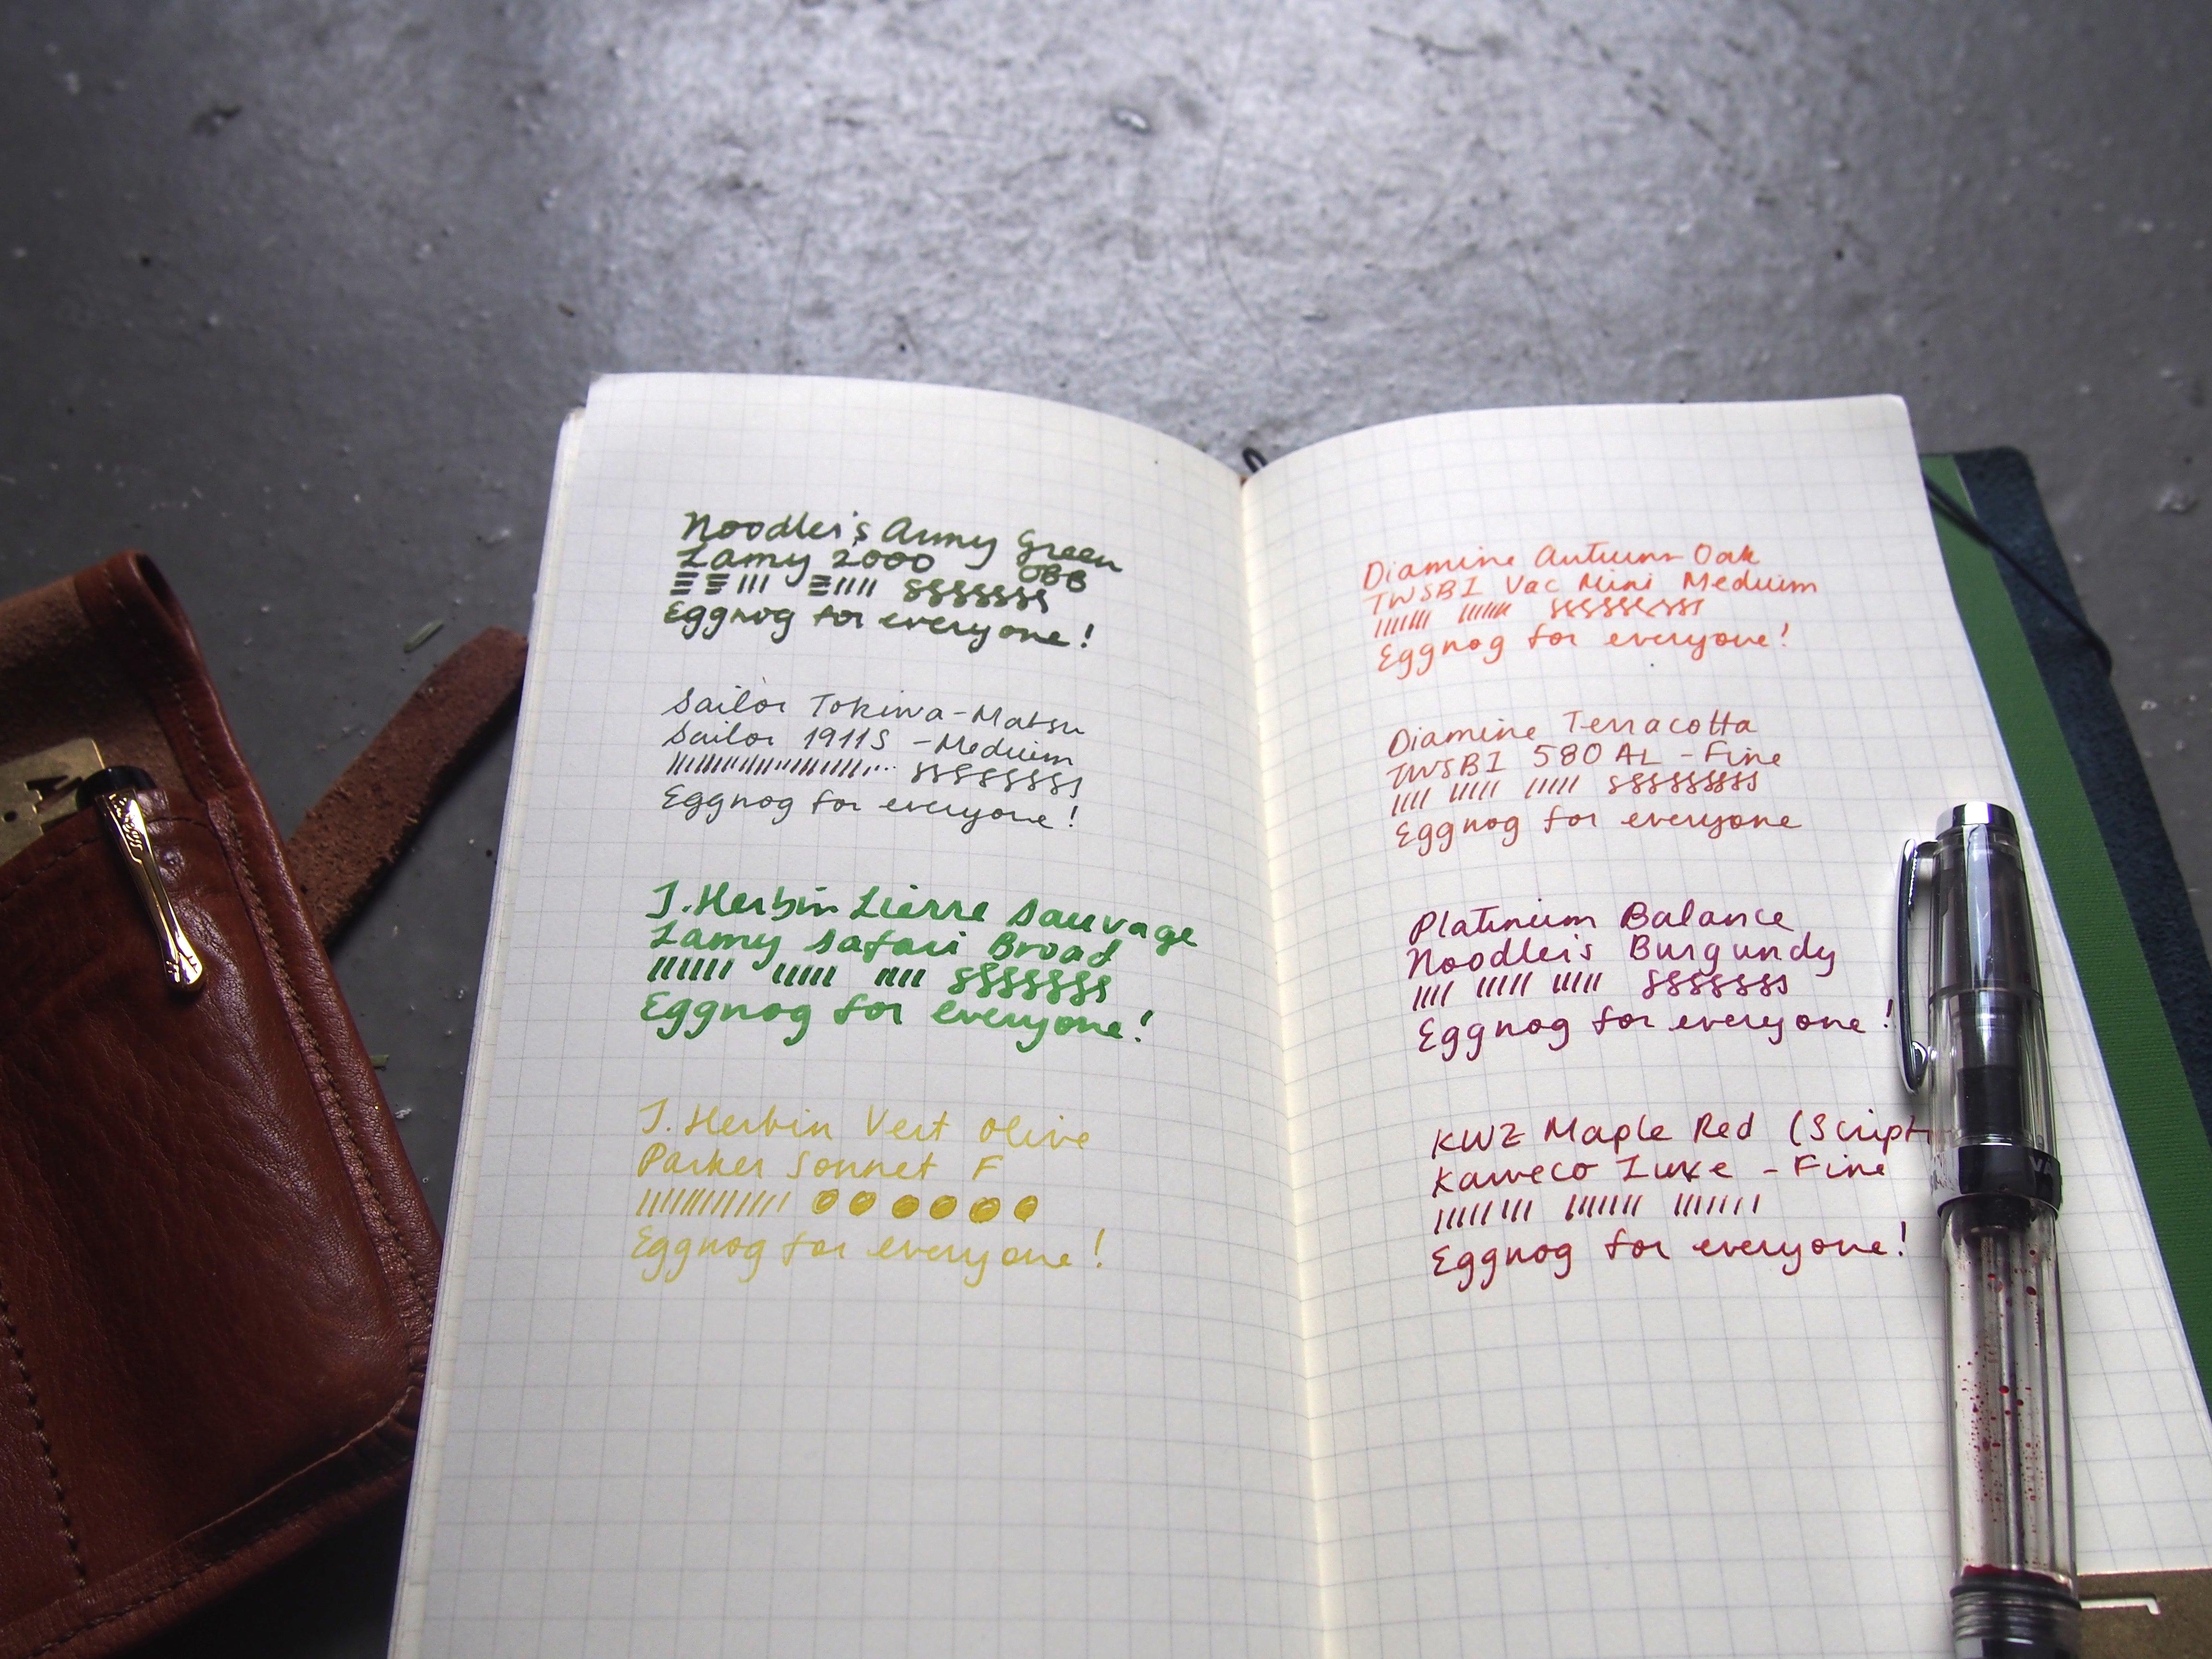 Noodler's Army Green
Lamy 2000 OBB
Eggnog for everyone!
Sailor Tokiwa-Matsu
Sailor 1911S - Medium
Eggnog for everyone!
J. Herbin Lierre Sauvage
Lamy Safari Broad
Eggnog for everyone!
J. Herbin Vert Olive
Parker Sonnet F
Eggnog for everyone!
Diamine Autumn Oak
TWSBI Vac Mini Medium
Eggnog for everyone!
Diamine Terracotta
TWSBI 580 AL - Fine
Eggnog for everyone
Platinum Balance
Noodler's Burgundy
Eggnog for everyone!
KWZ Maple Red (Script
Kaweco Luxe - Fine
Eggnog for everyone!